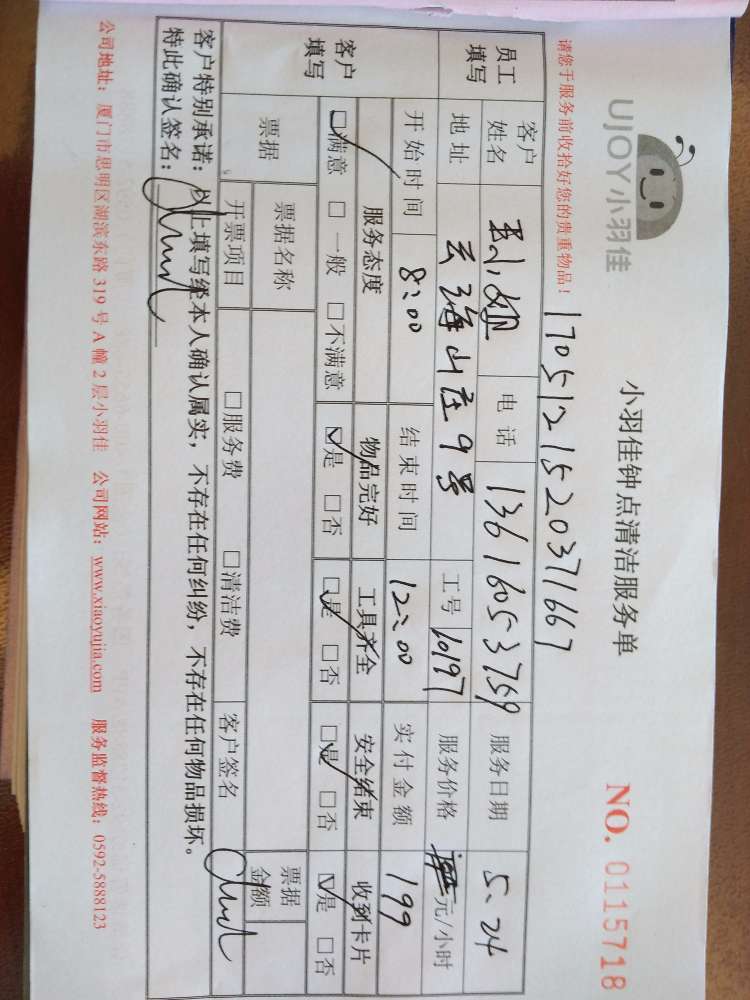 UJOY小羽佳
小羽佳钟点清洁服务单
NO. 0115718
请您于服务前收拾好您的贵重物品！
17051215203716​67
员工填写
客户姓名
小姐
电话
13616053759
服务日期
5.24
地址
云海山庄9号
工号
10197
服务价格
元/小时
开始时间
8:00
结束时间
12:00
实付金额
199
客户填写
服务态度 物品完好 工具齐全 安全结束 收到卡片
☑满意 □一般 □不满意 ☑是 □否 ☑是 □否 ☑是 □否 ☑是 □否
票据
票据名称
票据金额
开票项目 □服务费 □清洁费 客户签名
客户特别承诺：以上填写经本人确认属实，不存在任何纠纷，不存在任何物品损坏。
特此确认签名：
公司地址：厦门市思明区湖滨东路319号A幢2层小羽佳 公司网站：www.xiaoyujia.com 服务监督热线：0592-5888123